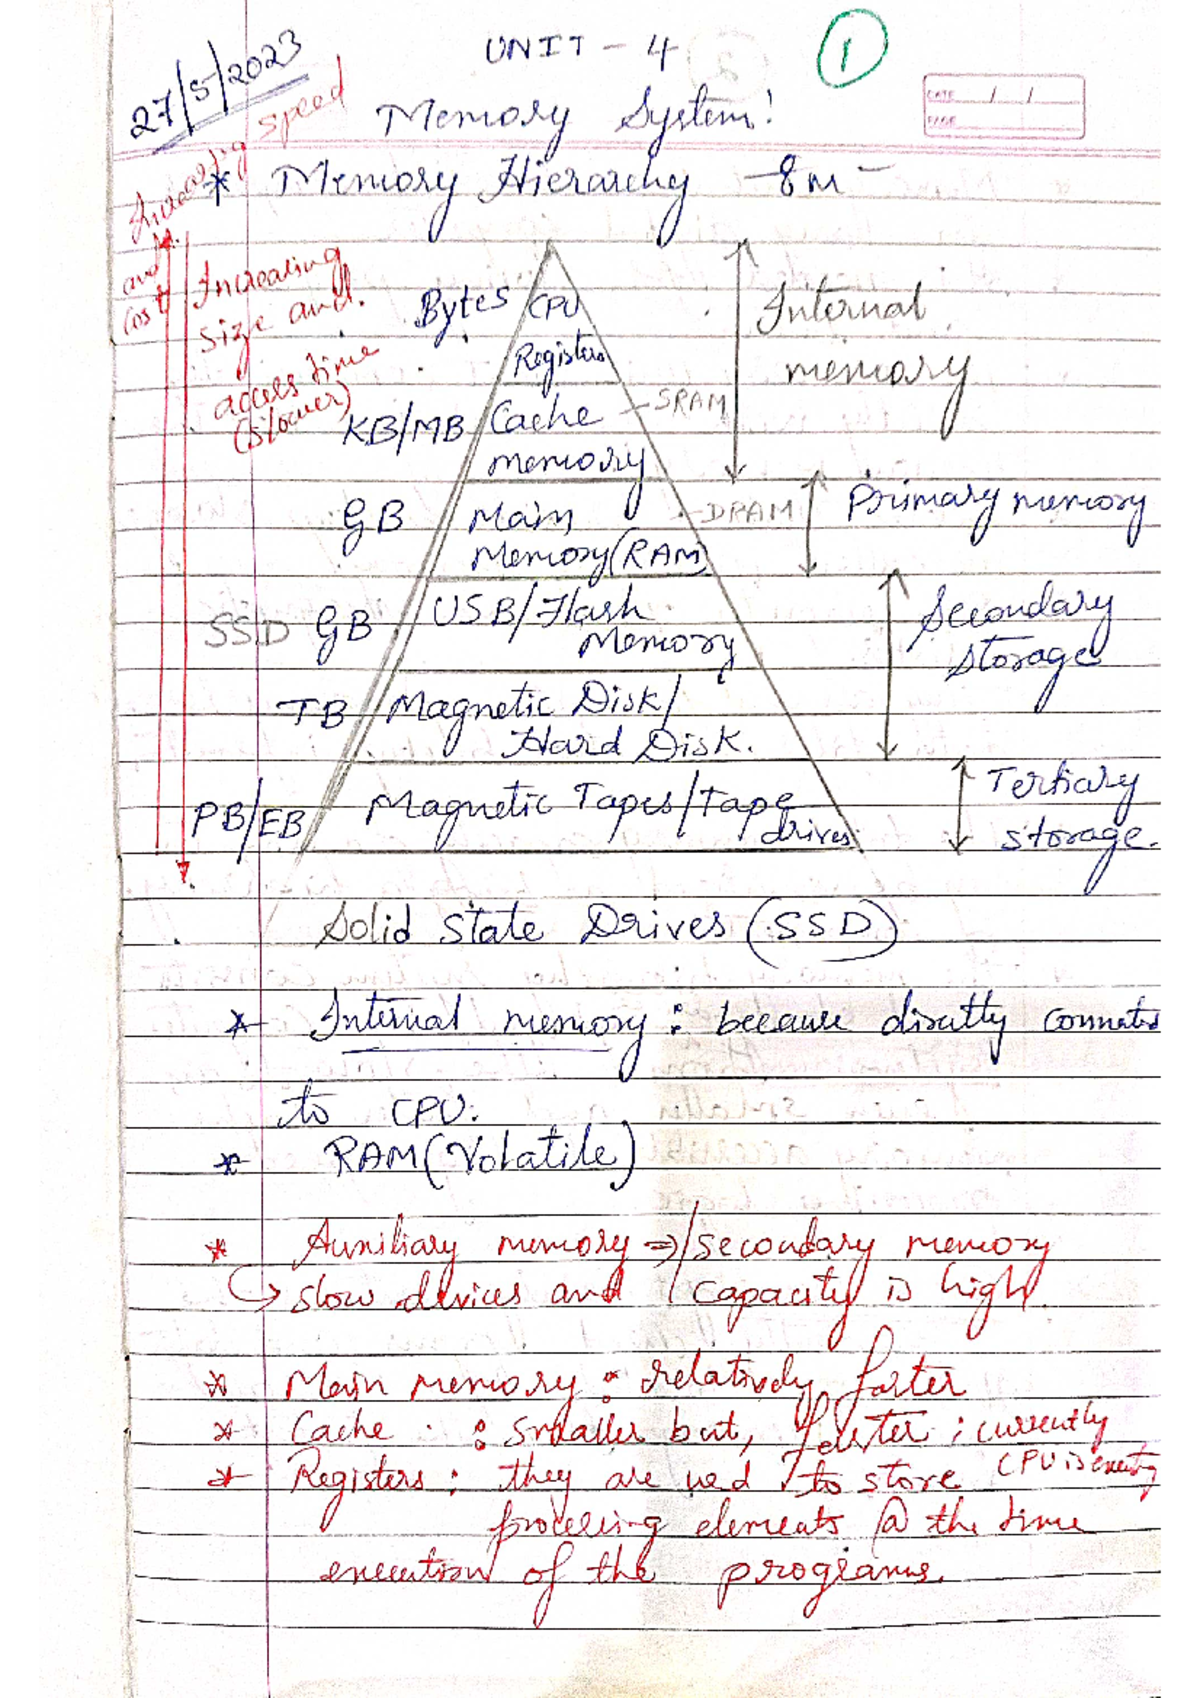 27/5/2023
UNIT - 4
1
Memory System!
DATE / /
PAGE
* Memory Hierarchy - 8m -
Increasing speed
and
cost
Increasing
size and
access time
(slower)
Bytes CPU
Registers
Internal
memory
KB/MB Cache
memory
SRAM
GB Main
Memory(RAM)
DRAM Primary memory
SSD GB USB/Flash
Memory
Secondary
storage
TB Magnetic Disk/
Hard Disk.
PB/EB Magnetic Tapes/Tape
drives
Tertiary
storage.
Solid State Drives (SSD)
* Internal memory : because directly connected
to CPU.
* RAM(Volatile)
* Auxiliary memory => secondary memory
slow devices and capacity is high.
* Main memory : relatively faster
* Cache : smaller but, faster ; currently
CPU is executing
* Registers : they are used to store
processing elements @ the time
execution of the programs.